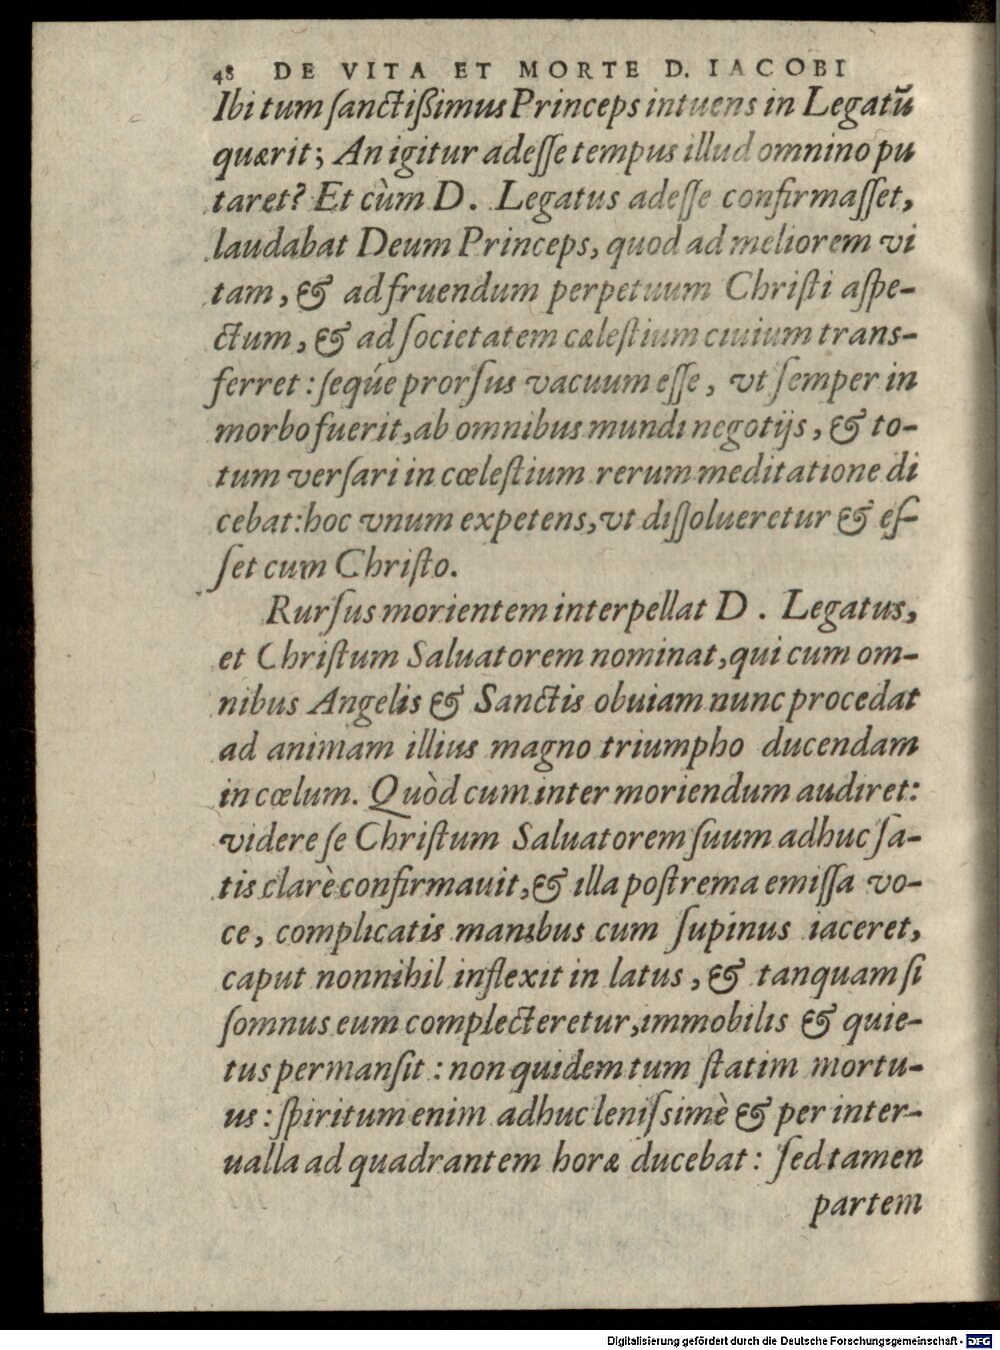 48 DE VITA ET MORTE D. IACOBI
Ibi tum ſanctißimus Princeps intuens in Legatū
quærit; An igitur adeſſe tempus illud omnino pu
taret? Et cùm D. Legatus adeſſe confirmaſſet,
laudabat Deum Princeps, quod ad meliorem vi
tam, & ad fruendum perpetuum Chriſti aſpe-
ctum, & ad ſocietatem cæleſtium ciuium trans-
ferret: ſeq́ue prorſus vacuum eſſe, vt ſemper in
morbo fuerit, ab omnibus mundi negotijs, & to-
tum verſari in cœleſtium rerum meditatione di
cebat: hoc vnum expetens, vt diſſolueretur & eſ-
ſet cum Chriſto.
Rurſus morientem interpellat D. Legatus,
et Chriſtum Saluatorem nominat, qui cum om-
nibus Angelis & Sanctis obuiam nunc procedat
ad animam illius magno triumpho ducendam
in cœlum. Quòd cum inter moriendum audiret:
videre ſe Chriſtum Saluatorem ſuum adhuc ſa-
tis clarè confirmauit, & illa poſtrema emiſſa vo-
ce, complicatis manibus cum ſupinus iaceret,
caput nonnihil inflexit in latus, & tanquam ſi
ſomnus eum complecteretur, immobilis & quie-
tus permanſit: non quidem tum ſtatim mortu-
us: ſpiritum enim adhuc leniſsimè & per inter-
ualla ad quadrantem horæ ducebat: ſed tamen
partem
Digitalisierung gefördert durch die Deutsche Forschungsgemeinschaft - DFG